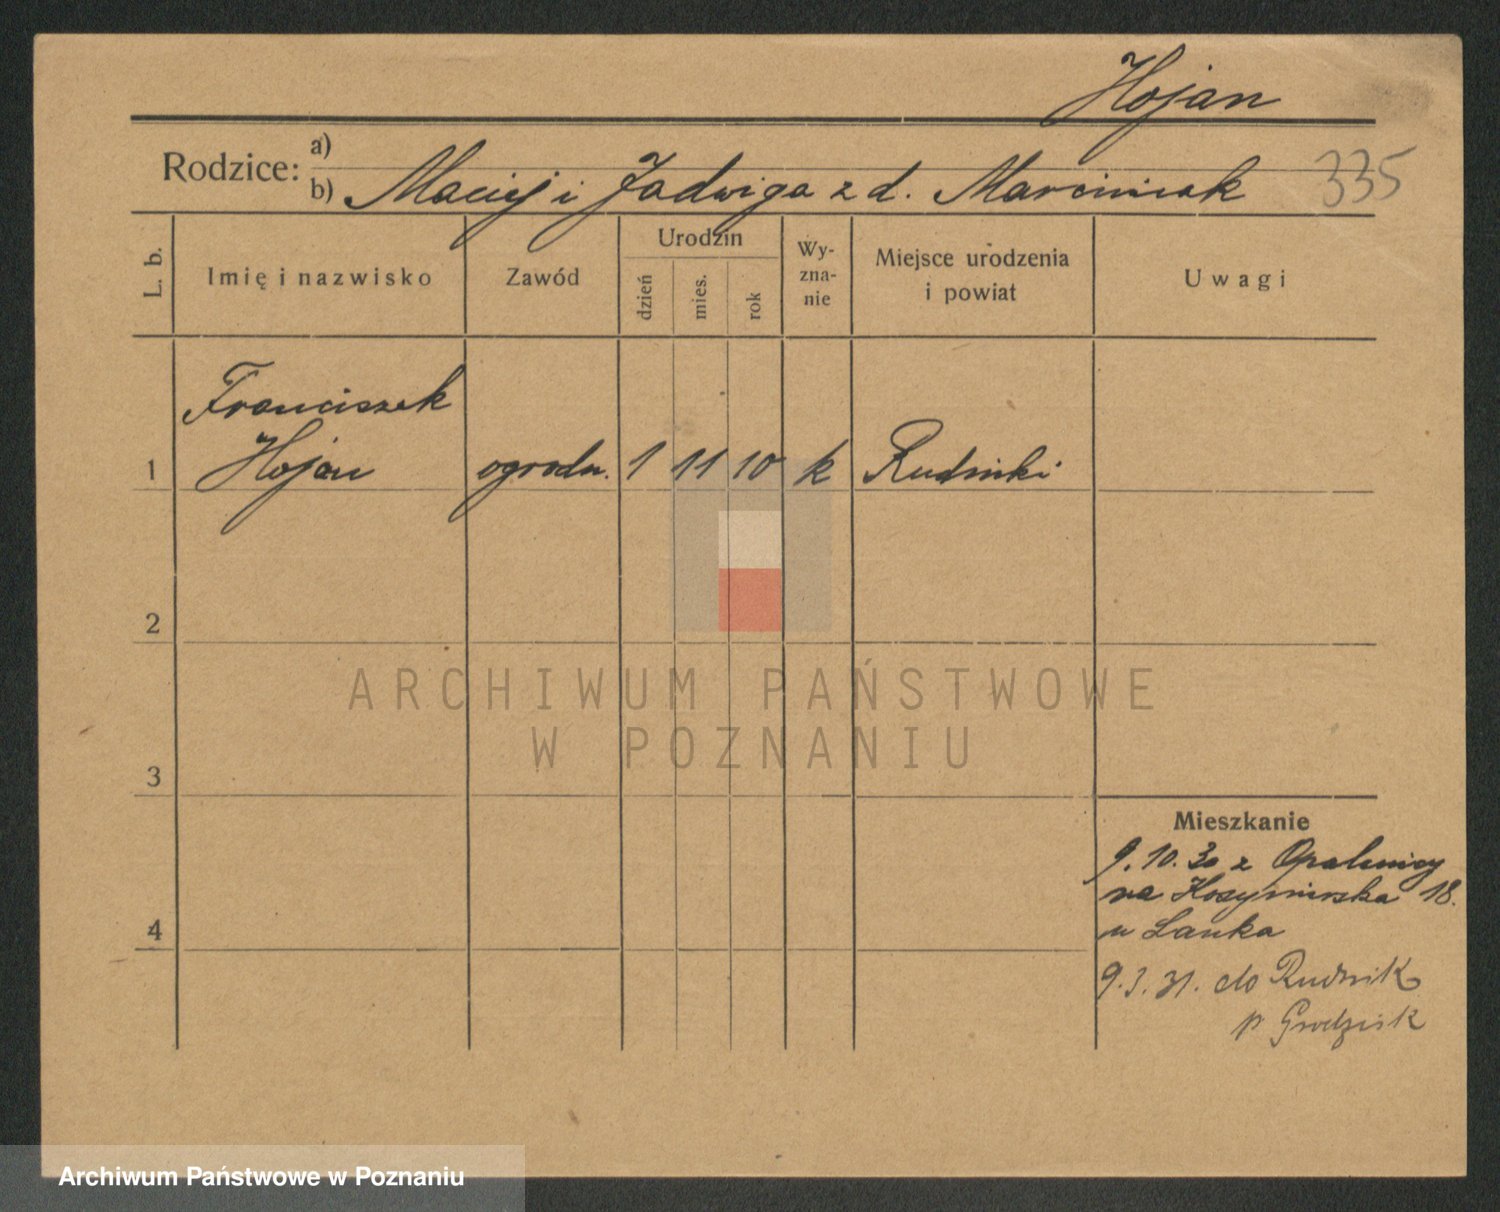 Hojan
Rodzice: a)
b) Maciej i Jadwiga z d. Marciniak 335
L. b.
Imię i nazwisko
Zawód
Urodzin
dzień
mies.
rok
Wy-
zna-
nie
Miejsce urodzenia
i powiat
Uwagi
Franciszek
1 Hojan ogrodn. 1 11 10 k Rudniki
2
3
4
Mieszkanie
9.10.30 z Opalenicy
na 18.
u Lanka
9.3.31. do Rudnik
p Grodzisk
ARCHIWUM PAŃSTWOWE
W POZNANIU
Archiwum Państwowe w Poznaniu